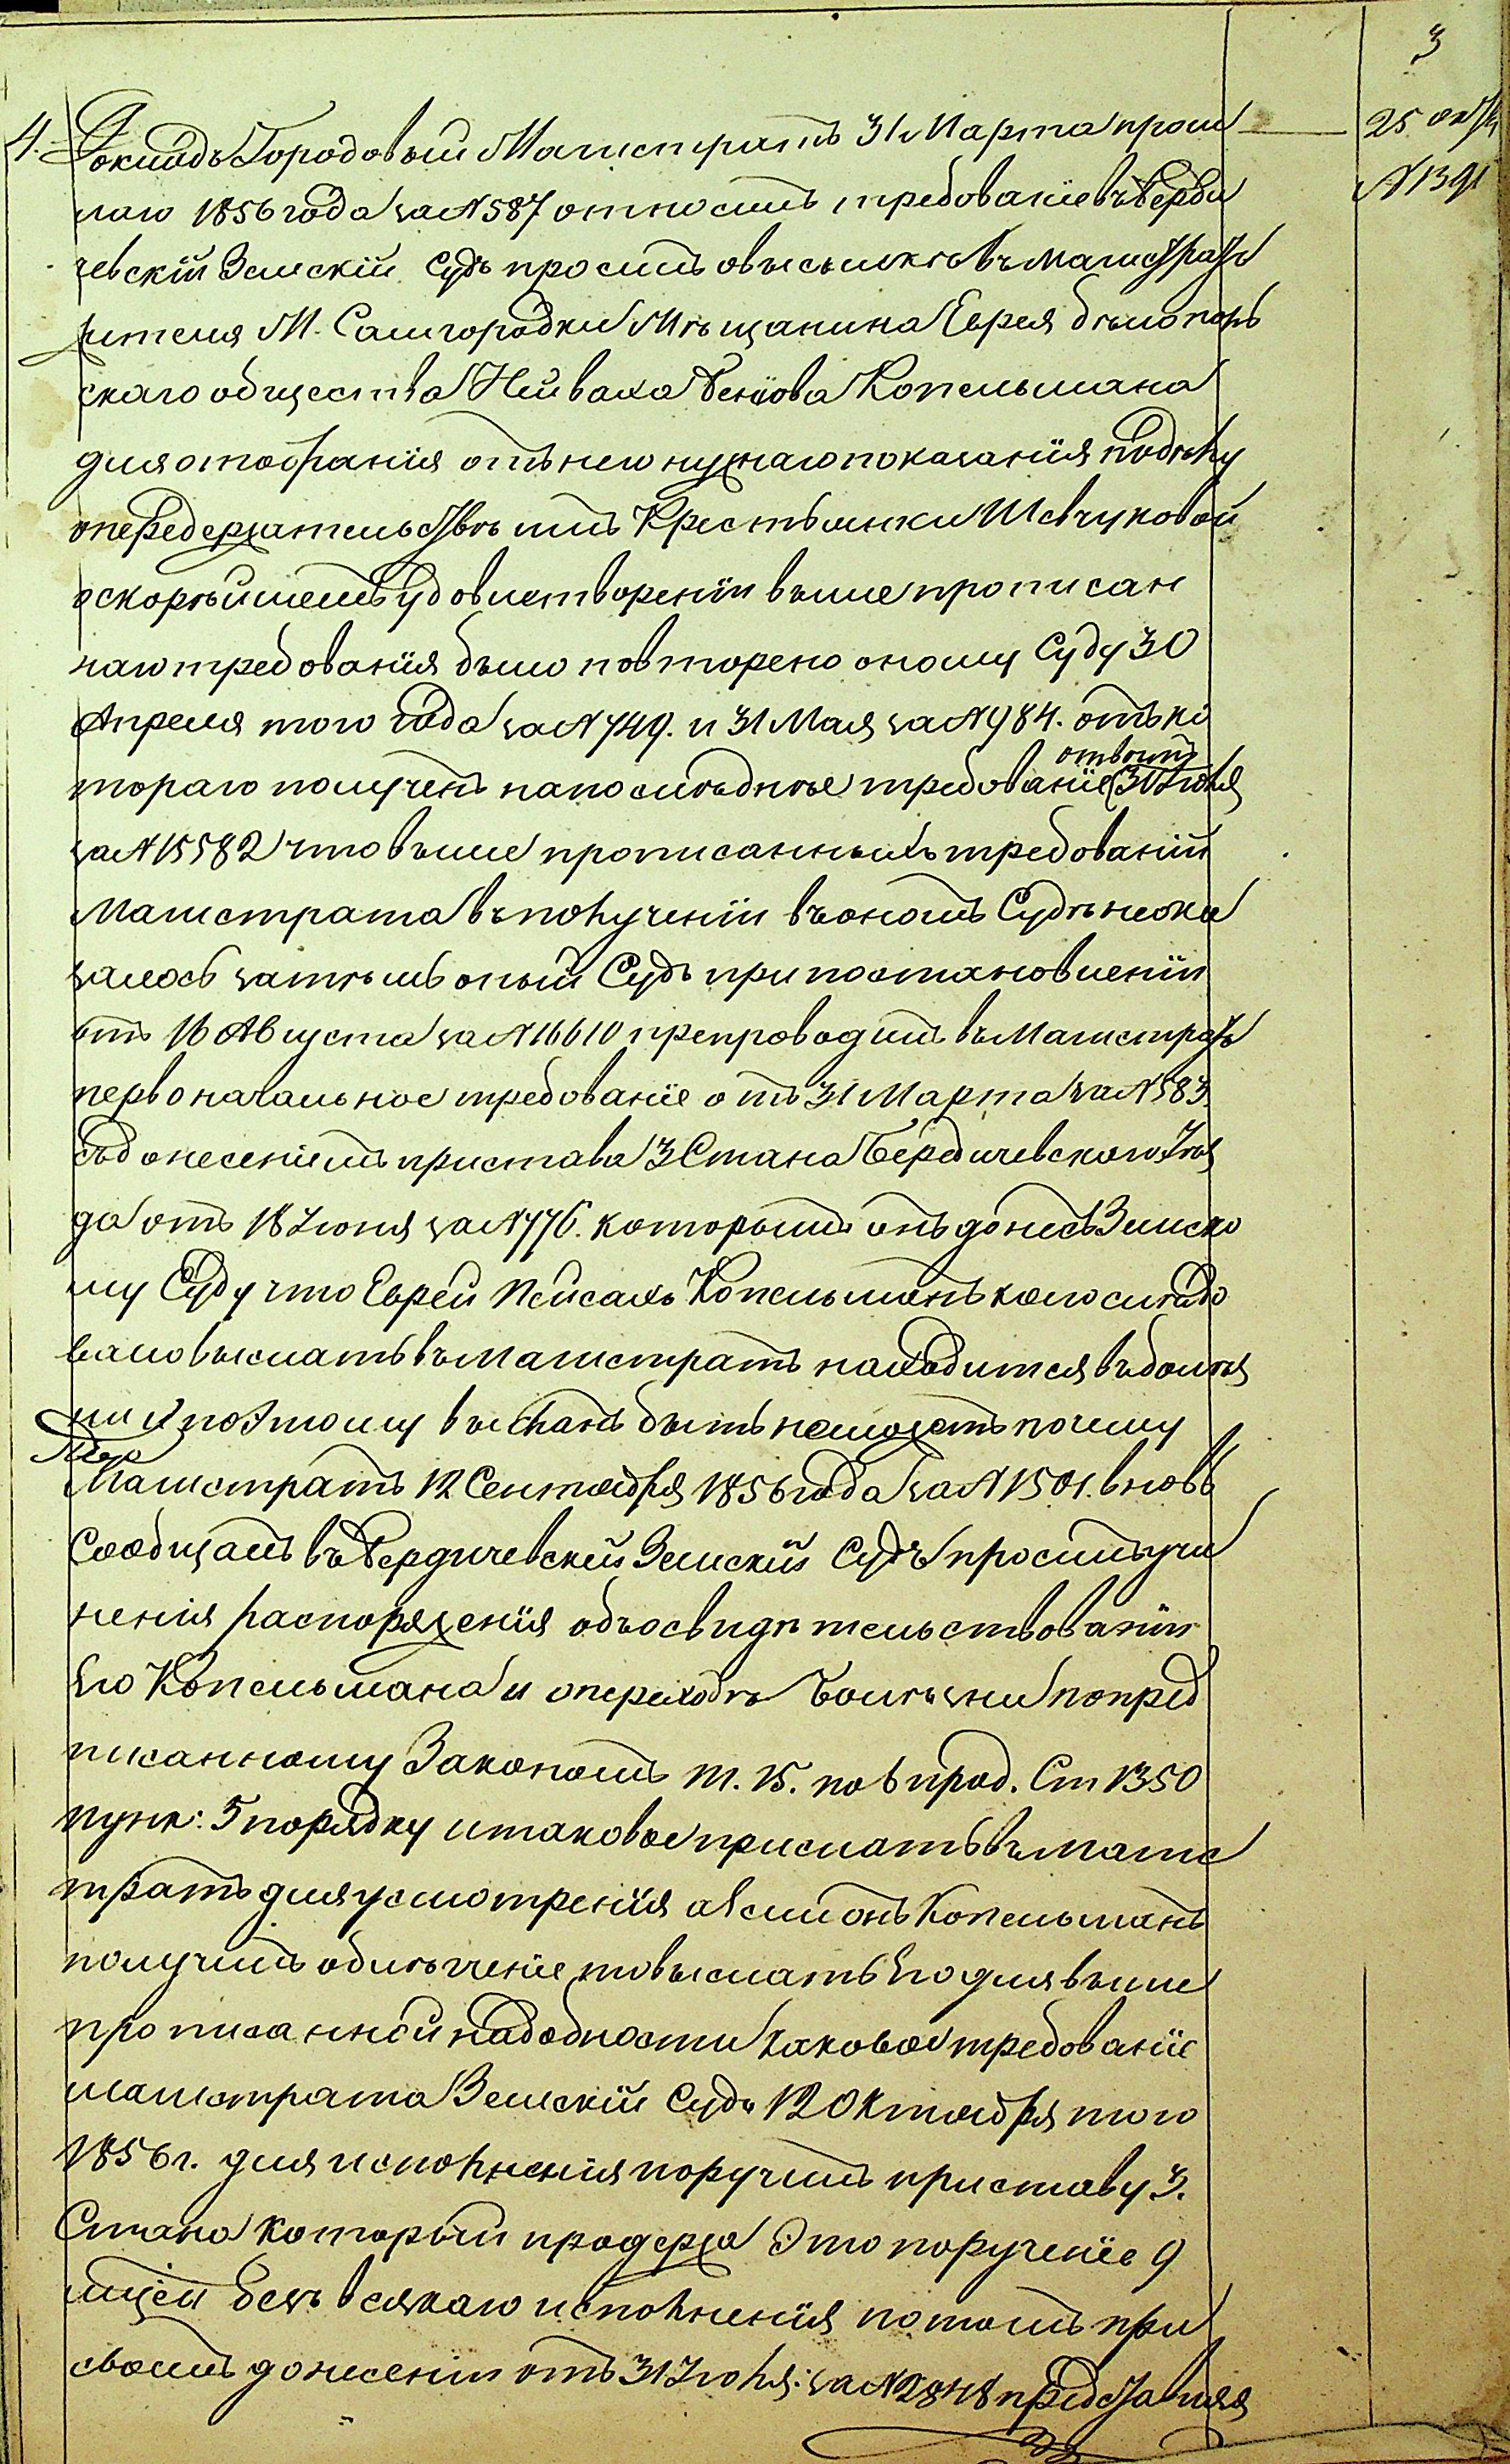 3
4. Докладъ Городовый Магистратъ 31 Марта прош
25 октя
лаго 1856 года за N 587 относитъ требованіе въ Берди
N 1391
чевскій Земскій Судъ проситъ о высылкѣ въ Магистратъ
жителя М. Самгородки Мѣщанина Еврея бѣлополь
скаго общества Пейсаха Бенцова Копельмана
для отобранія отъ него нужнаго показанія по дѣлу
о передержательствѣ имъ Крестьянки Шевчуковой
о скорѣйшемъ удовлетвореніи выше прописан
наго требованія было повторено оному Суду 30
Апреля того года за N 749. и 31 Мая за N 984. отъ ко
тораго полученъ на послѣднѣе требованіе отвѣтъ 31 Іюля
за N 15582 что выше прописанныхъ требованій
Магистрата въ полученіи въ ономъ Судѣ не ока
залось затѣмъ оный Судъ при постановленіи
отъ 16 Августа за N 16610 препроводитъ въ Магистратъ
первоначальное требованіе отъ 31 Марта за N 583
съ донесеніемъ пристава 3 Стана Бердичевскаго Уѣз
да отъ 18 Іюня за N 776. которымъ онъ донесъ Земско
му Суду что Еврей Пейсахъ Копельманъ коего слѣдо
вало выслать въ Магистратъ находится въ болѣз
ни и поэтому высланъ быть неможетъ почему
Магистратъ 12 Сентября 1856 года за N 1501. вновь
сообщалъ въ Бердичевскій Земскій Судъ проситъ учи
ненія распоряженія объ освидѣтельствованіи
Его Копельмана и о переходѣ болѣзни по пред
писанному Закономъ т. 15. по 6 прод. Ст 1350
пунк: 5 порядку и таковое прислать въ Магис
тратъ для усмотренія а если онъ Копельманъ
получитъ облегченіе то выслать Его для выше
прописанной надобности каковое требованіе
магистрата Земскій Судъ 12 Октября того
1856 г. для исполненія поручитъ приставу 3.
Стана который продержа Это порученіе 9
мѣцей безъ всякаго исполненія потомъ при
своемъ донесеніи отъ 31 Іюля: за N представляя